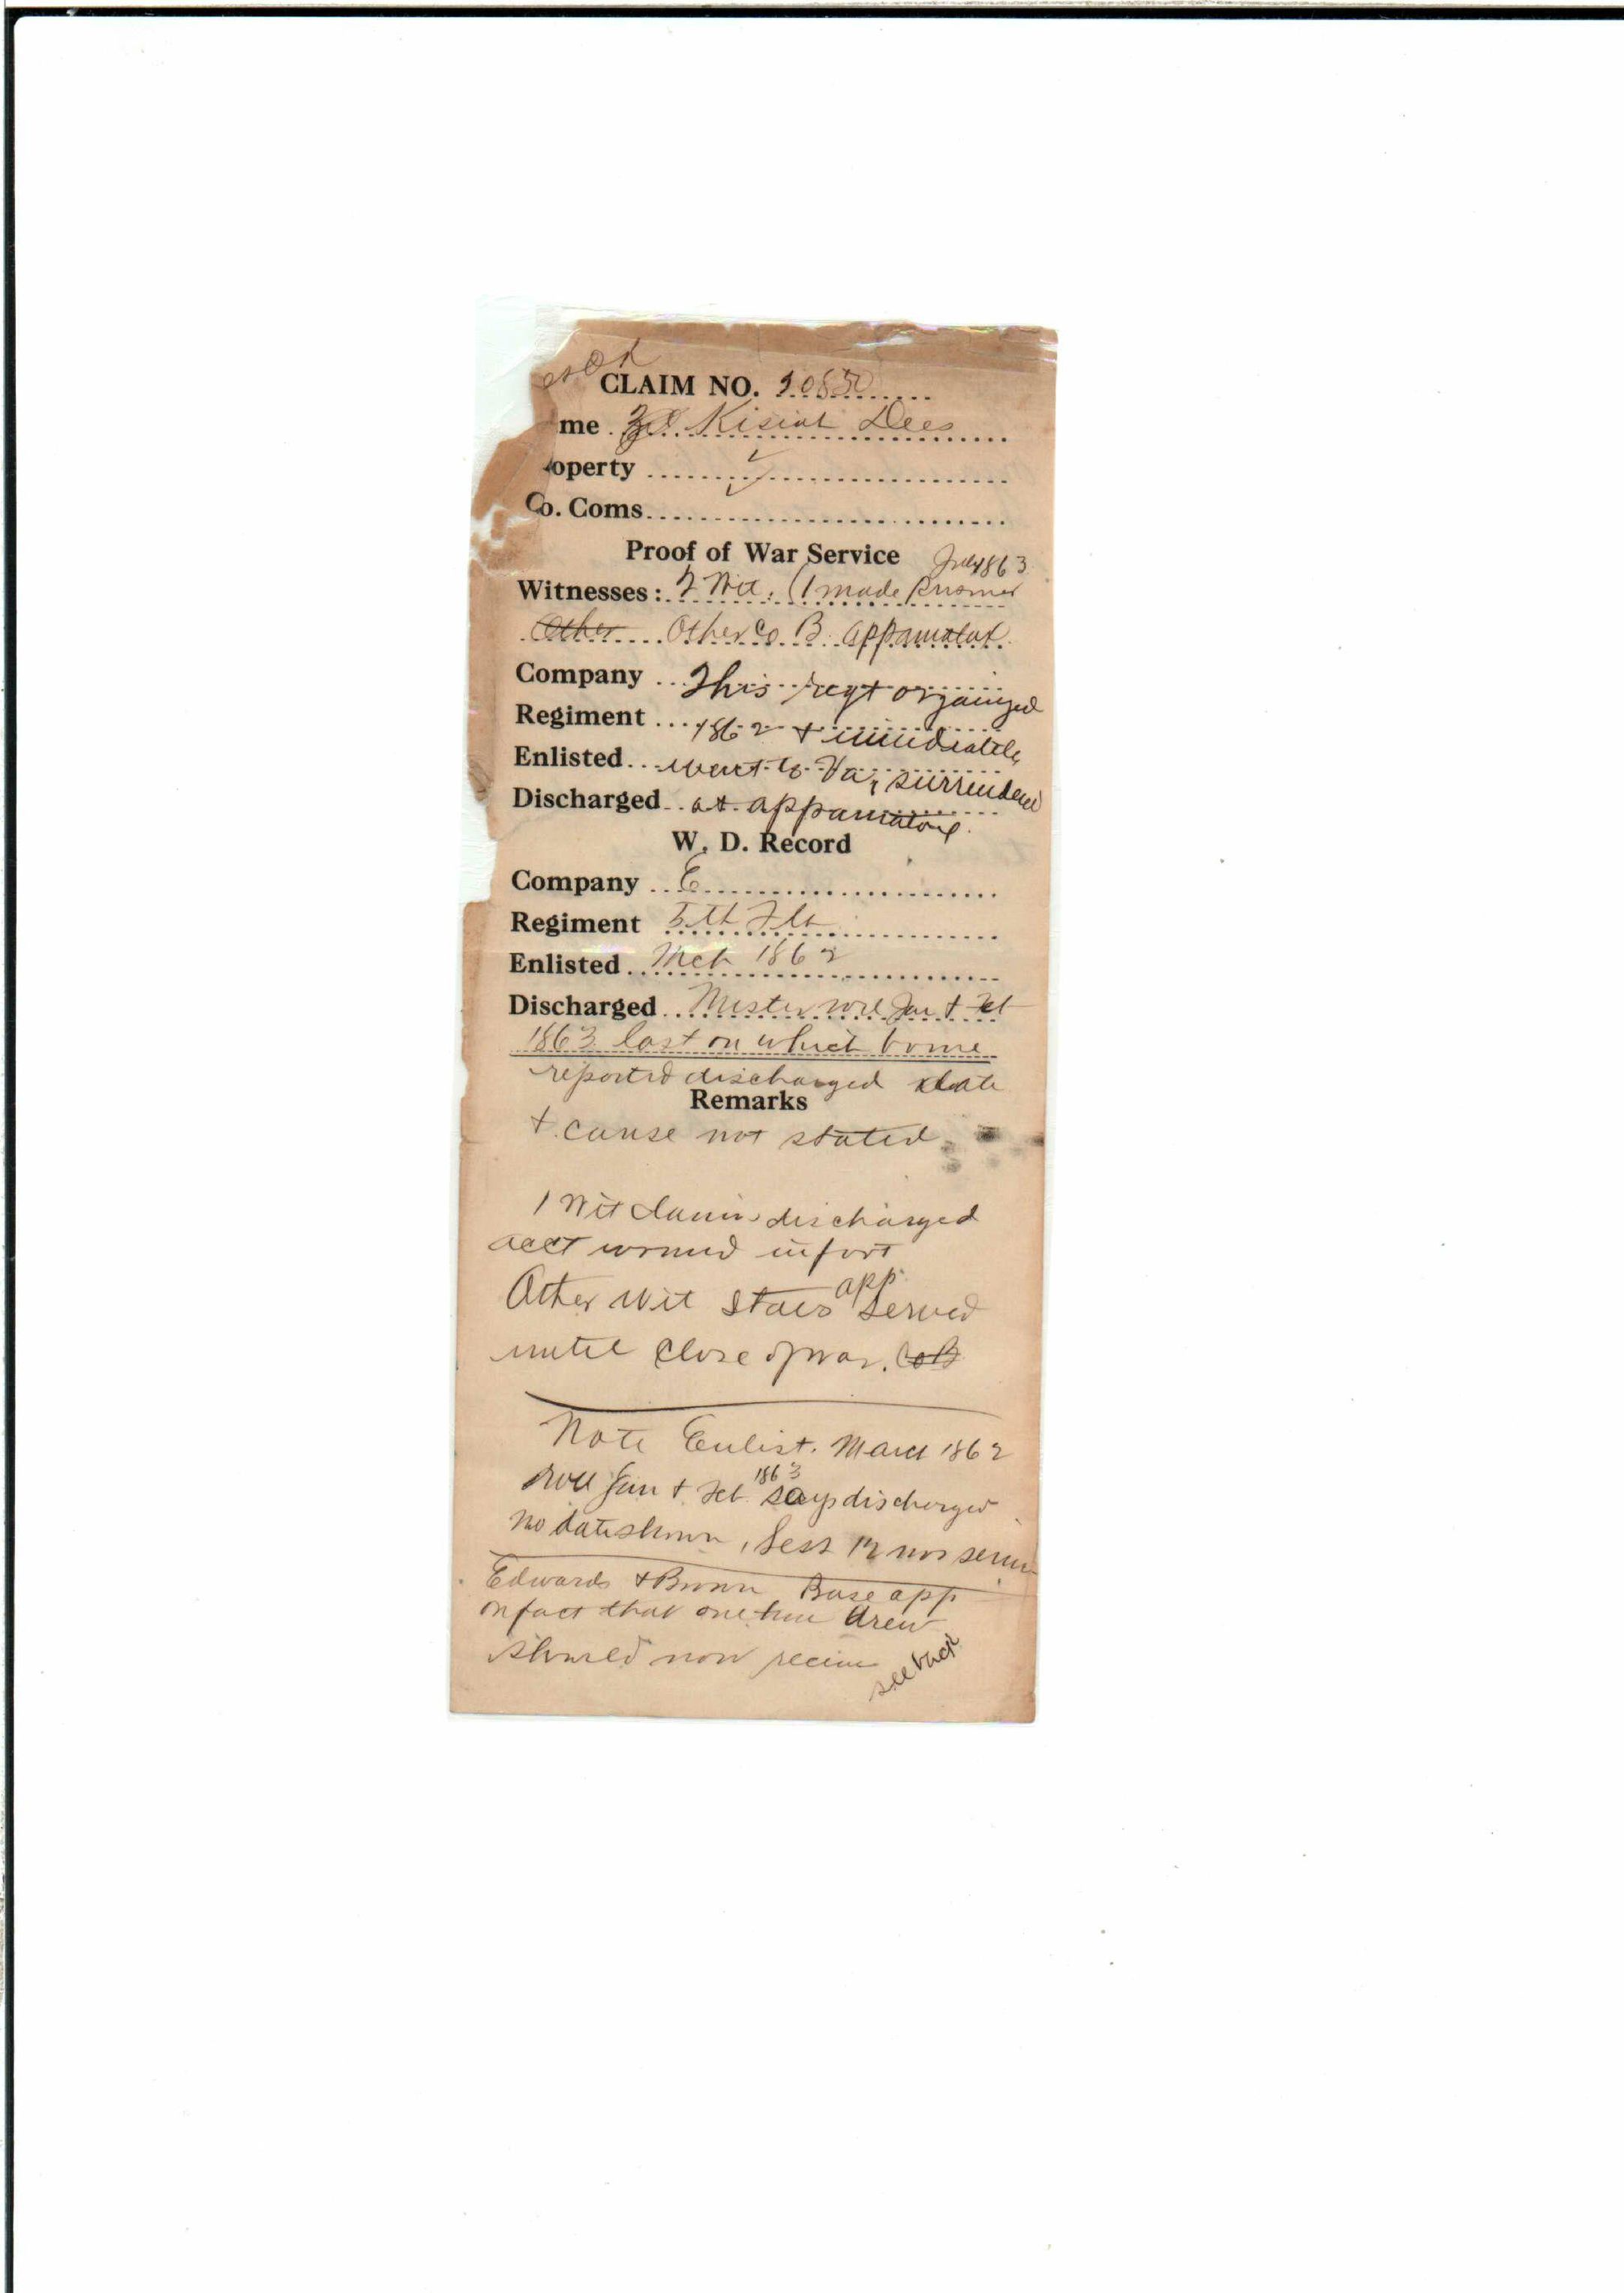 CLAIM NO. 10850
me Kisiah Dees
operty
Co. Coms
Proof of War Service July 1863
Witnesses: 2 Wit. (1 made Prisoner
Other Other Co B. appamatat
Company This regt organized
Regiment 1862 + immediately
Enlisted went to Va, surrendered
Discharged at appamatox.
W. D. Record
Company E
Regiment 5th Fla
Enlisted Mch 1862
Discharged Muster roll Jan + Feb
1863 last on which borne
reported discharged date
Remarks
+ cause not stated
1 Wit claims discharged
acct wound in foot
Other wit states app served
until close of war. Co B
Note Enlist. March 1862
Roll Jan + Feb 1863 says discharged
no date shown, Less 12 mos service
Edwards + Brown Base app
on fact that one time drew
should now receive
see back